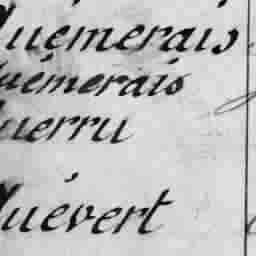 Quémerais
Quémerais
Querru
Quévert